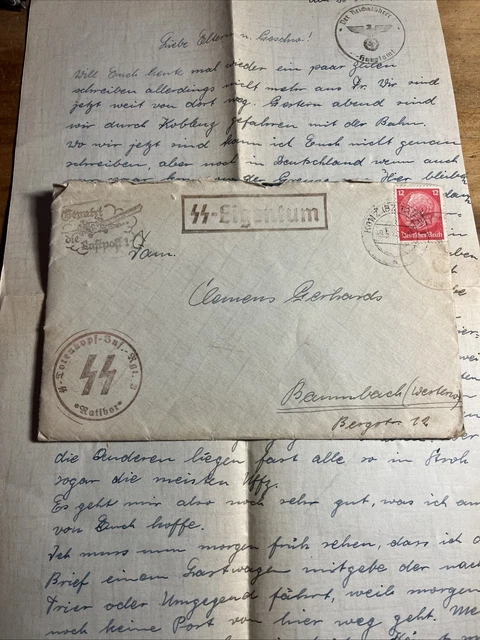 Der Reichsführer
Hauptamt
Liebe Eltern u. Geschw!
Will Euch heut mal wieder ein paar Zeilen
schreiben allerdings nicht mehr aus Tr. Wir sind
jetzt weit von dort weg. Gestern abend sind
wir durch Koblenz gefahren mit der Bahn.
Wo wir jetzt sind kann ich Euch nicht genau
schreiben, aber noch in Deutschland wenn auch
SS-Eigentum
12 12
Deutsches Reich
Benutzt
die Luftpost
Fam.
Clemens Gerhards
SS-Totenkopf-Inf.-Rgt. 3
SS
Ratibor
Baumbach (Westerw)
Bergstr. 12
die Anderen liegen fast alle so in Stroh
sogar die meisten Uffz.
Es geht mir also noch sehr gut, was ich auch
von Euch hoffe.
Ich muss nun morgen früh sehen, dass ich d
Brief einem Lastwagen mitgebe der nach
Trier oder Umgegend fährt, weil morgen
noch keine Post von hier weg geht.